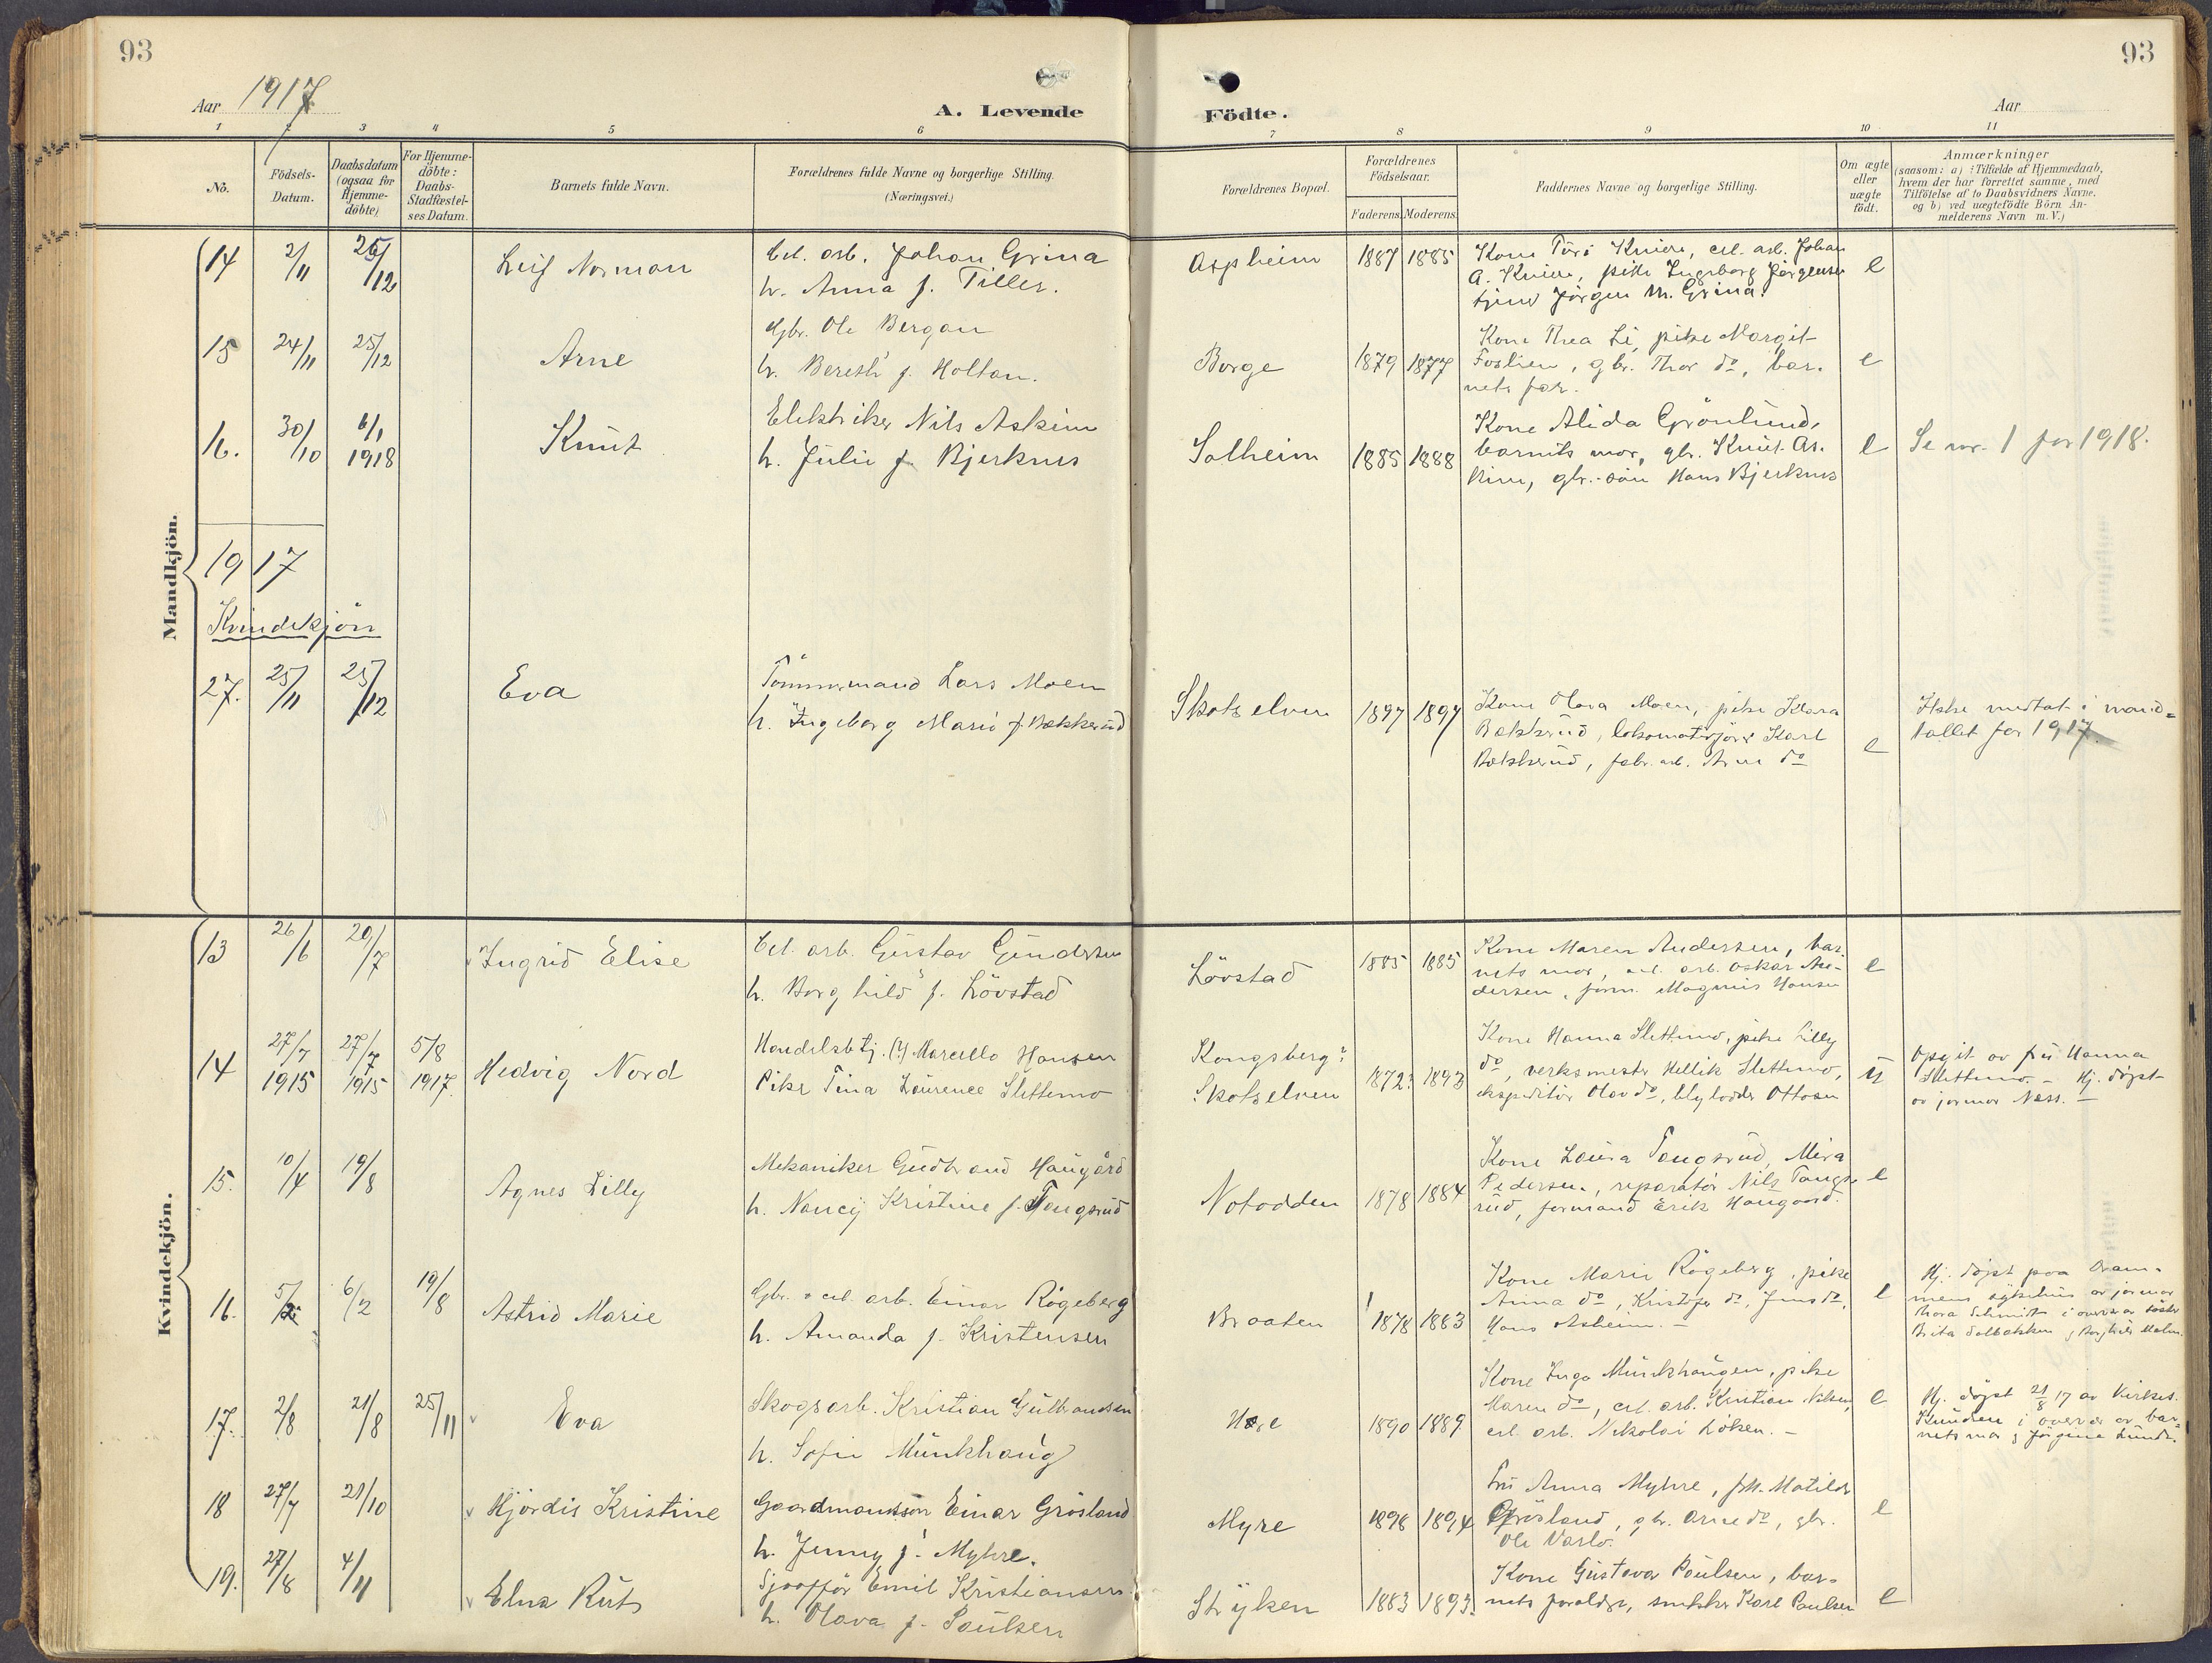 93
93
Aar 1917
A. Levende
Födte.
Aar
1 2 3 4 5 6 7 8 9 10 11
No.
Födsels-
Datum.
Daabsdatum
(ogsaa for
Hjemme-
döbte)
For Hjemme-
döbte:
Daabs-
Stadfæstel-
ses Datum.
Barnets fulde Navn.
Forældrenes fulde Navne og borgerlige Stilling.
(Næringsvei.)
Forældrenes Bopæl.
Forældrenes
Födselsaar.
Faderens. Moderens.
Faddernes Navne og borgerlige Stilling.
Om ægte
eller
uægte
födt.
Anmærkninger
(saasom: a) i Tilfælde af Hjemmedaab,
hvem der har forrettet samme, med
Tilföielse af to Daabsvidners Navne.
og b) ved uægtefödte Börn An-
melderens Navn m. V.)
Mandkjön.
14 2/11 26/12 Leif Norman
Cel. arb. Johan Grina
h. Anna f. Tiller.
Aspheim 1887 1885
Kone Turi Kniere, cel. arb. Johan
A. Kniere, pike Ingeborg Jörgensen
Jörgen M. Grina.
e
15 24/11 25/12 Arne
Gbr. Ole Bergan
h. Bereth f. Holtan.
Borge 1879 1877
Kone Thea Li, pike Margit
Foslien, gbr. Thor do, bar-
nets far.
e
16. 30/10 6/1 1918 Knut
Elektriker Nils Askim
h. Julie f. Bjerknes
Solheim 1885 1888
Kone Alida Grönlund,
barnets mor, gbr. Knut As-
kim, gbr.-sön Hans Bjerknes
e
Se nr. 1 for 1918.
1917
Kvindekjön
27. 25/11 25/12 Eva
Tömmermand Lars Moen
h. Ingeborg Marie f. Bækkerud
Skotselven 1897 1897
Kone Olava Moen, pike Klara
Bækkerud, lokomotivförer Karl
Bækkerud, fabr. arb. Arne do
e
Ikke medtat i mand-
tallet for 1917.
Kvindekjön.
13 26/6 20/7 Ingrid Elise
Cel. arb. Gustav Gundersen
h. Borghild f. Lövstad
Lövstad 1885 1885
Kone Maren Andersen, bar-
nets mor, cel. arb. Oskar An-
dersen, form. Magnus Hansen
e
14 27/7 1915 27/7 1915 5/8 1917. Hedvig Nord
Handelsbtj. (?) Marcello Hansen
Pike Tina Laurence Slettemo
Kongsberg?
Skotselven 1872? 1893
Kone Hanna Slettemo, pike Lilly
do, verksmester Hellik Slettemo,
ekspeditör Olav do, Ottosen
u
Opgit av fru Hanna
Slettemo. - Hj. döpt
av jormor Næss. -
15. 10/4 19/8 Agnes Lilly
Mekaniker Gudbrand Haugård
h. Nancy Kristine f. Tangsrud
Notodden 1878 1884
Kone Laura Tangsrud, Mira
Pedersen, reparatör Nils Tangs-
rud, formand Erik Haugaard.
e
16. 5/2 6/2 19/8 Astrid Marie
Gbr. & cel. arb. Einar Rögeberg
h. Amanda f. Kristensen
Braaten 1878 1883
Kone Marie Rögeberg, pike
Anna do, Kristofer do, Jens do,
Hans Asheim. -
e
Hj. döpt paa Dram-
mens sykehus av jormor
Thora Schmidt i overvær av söster
Brita Solbakken & Borghild Malm.
17. 2/8 21/8 25/11 Eva
Skogsarb. Kristian Gulbrandsen
h. Sofie Munkhaug
1890 1889
Kone Inga Munkhaugen, pike
Maren do, cel. arb. Kristian Nilsen,
cel. arb. Nikolai Löken. -
e
Hj. döpt 21/8 17 av Kirkes.
Knudsen i overvær av bar-
nets mor & Jörgine Lunde.
18 27/7 21/10 Hjördis Kristine
Gaardmandssön Einar Grösland
h. Jenny f. Myhre.
Myre 1898 1894
Fru Anna Myhre, frk. Matilde
Grösland, gbr. Arne do, gbr.
Ole Varlo.
e
19. 27/8 4/11 Elna Rut
Sjofför Emil Kristiansen
h. Olava f. Paulsen
Stryken 1883 1893.
Kone Gustava Paulsen, bar-
nets foreldre, snekker Karl Paulsen
e